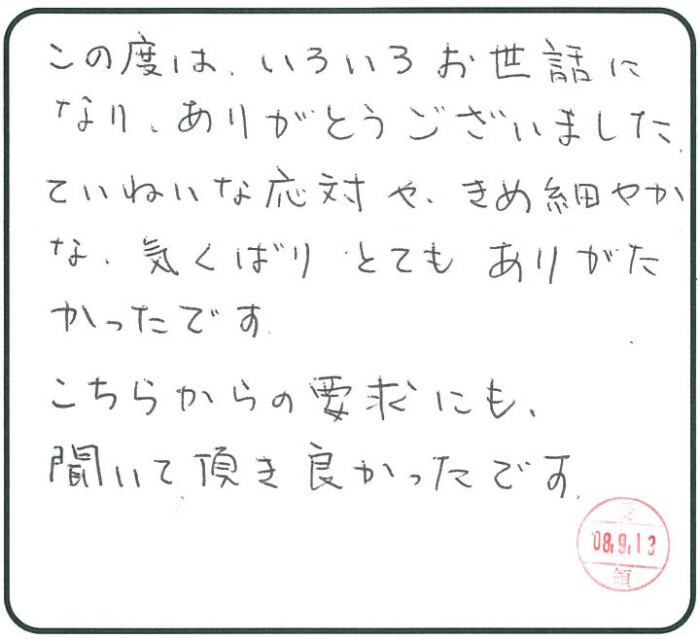 この度は、いろいろお世話に
なり、ありがとうございました。
ていねいな応対や、きめ細やか
な、気くばりとてもありがた
かったです。
こちらからの要求にも、
聞いて頂き良かったです。
受
'08.9.13
領